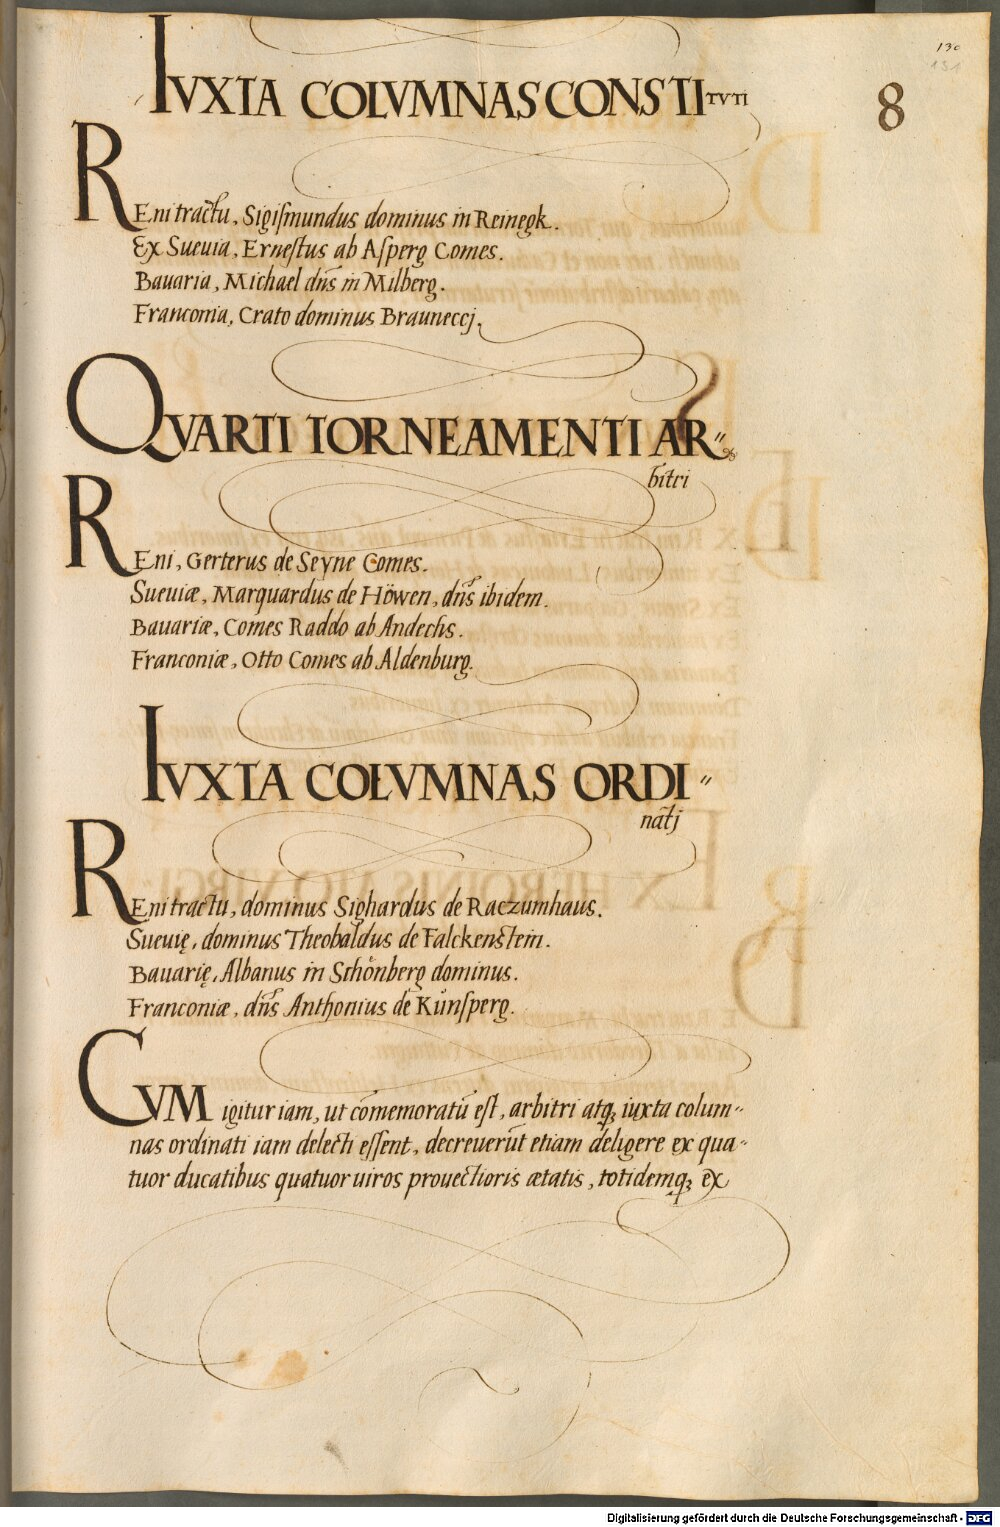 130
131
8
IVXTA COLVMNAS CONSTITVTI
REni tractu, Sigiſmundus dominus in Reinegk.
Ex Sueuia, Erneſtus ab Aſperg Comes.
Bauaria, Michael dn̄s in Milberg.
Franconia, Crato dominus Brauneccj.
QVARTI TORNEAMENTI AR〃
bitri
REni, Gerterus de Seyne Comes.
Sueuiæ, Marquardus de Höwen, dn̄s ibidem.
Bauariæ, Comes Raddo ab Andechs.
Franconiæ, Otto Comes ab Aldenburg.
IVXTA COLVMNAS ORDI〃
nātj
REni tractu, dominus Sighardus de Raczumhaus.
Sueuię, dominus Theobaldus de Falckenstein.
Bauarię, Albanus in Schönberg dominus.
Franconiæ, dn̄s Anthonius de Kűnſperg.
CVM igitur iam, ut cōmemoratū eſt, arbitri atq̨ iuxta colum〃
nas ordinati iam delecti eſſent, decreuerūt etiam deligere ex qua〃
tuor ducatibus quatuor uiros prouectioris ætatis, totidemq̨ ex
Digitalisierung gefördert durch die Deutsche Forschungsgemeinschaft - DFG